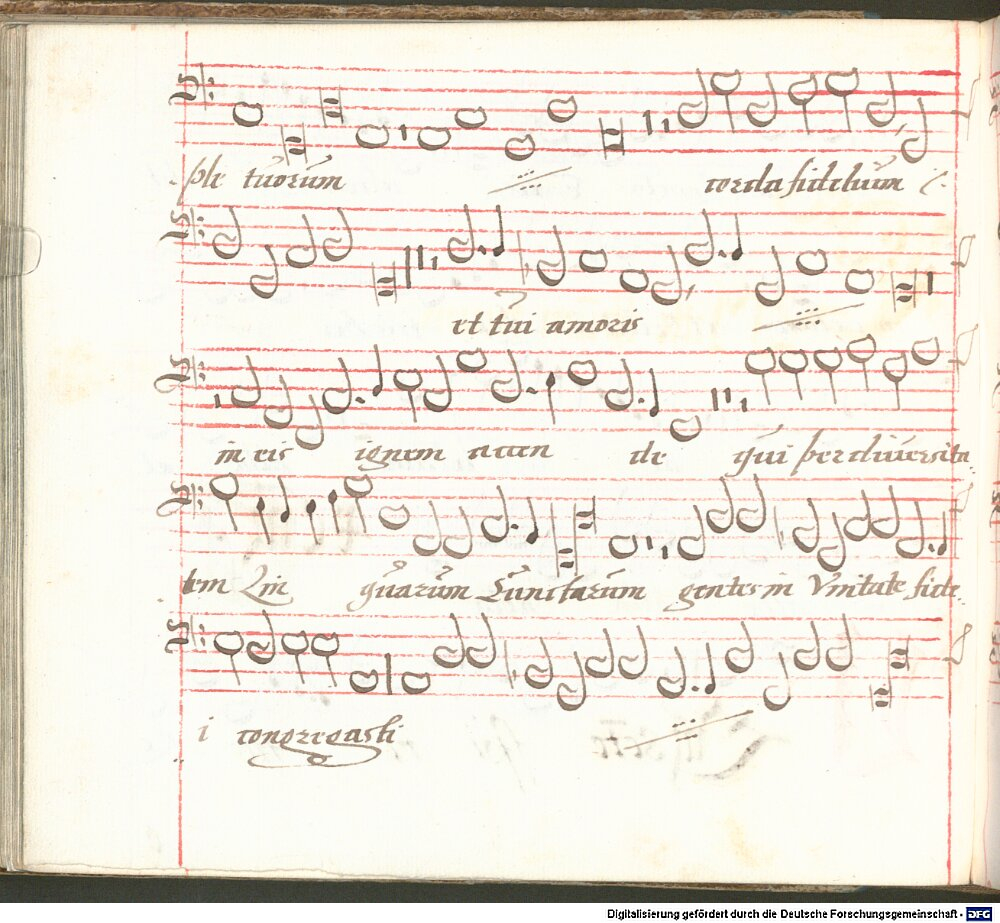 ple tuorum corda fidelium
et tui amoris
in eis ignem accen de qui per diversita
tem Lin guarum cunctarum gentes in Vnitate fide
i congregasti
Digitalisierung gefördert durch die Deutsche Forschungsgemeinschaft - DFG